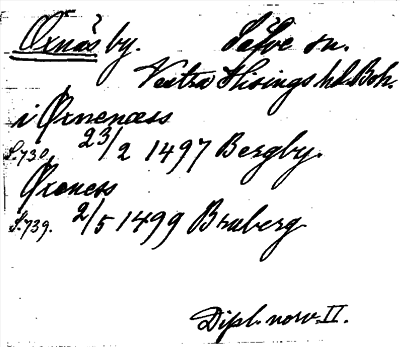 Öxnäs by. Säve sn.
Västra Hisings hd. Boh.
i Øxnenæss
S. 730. 23/2 1497 Bergby.
Øxness
S. 739. 2/5 1499 Braberg
Dipl. norv. II.